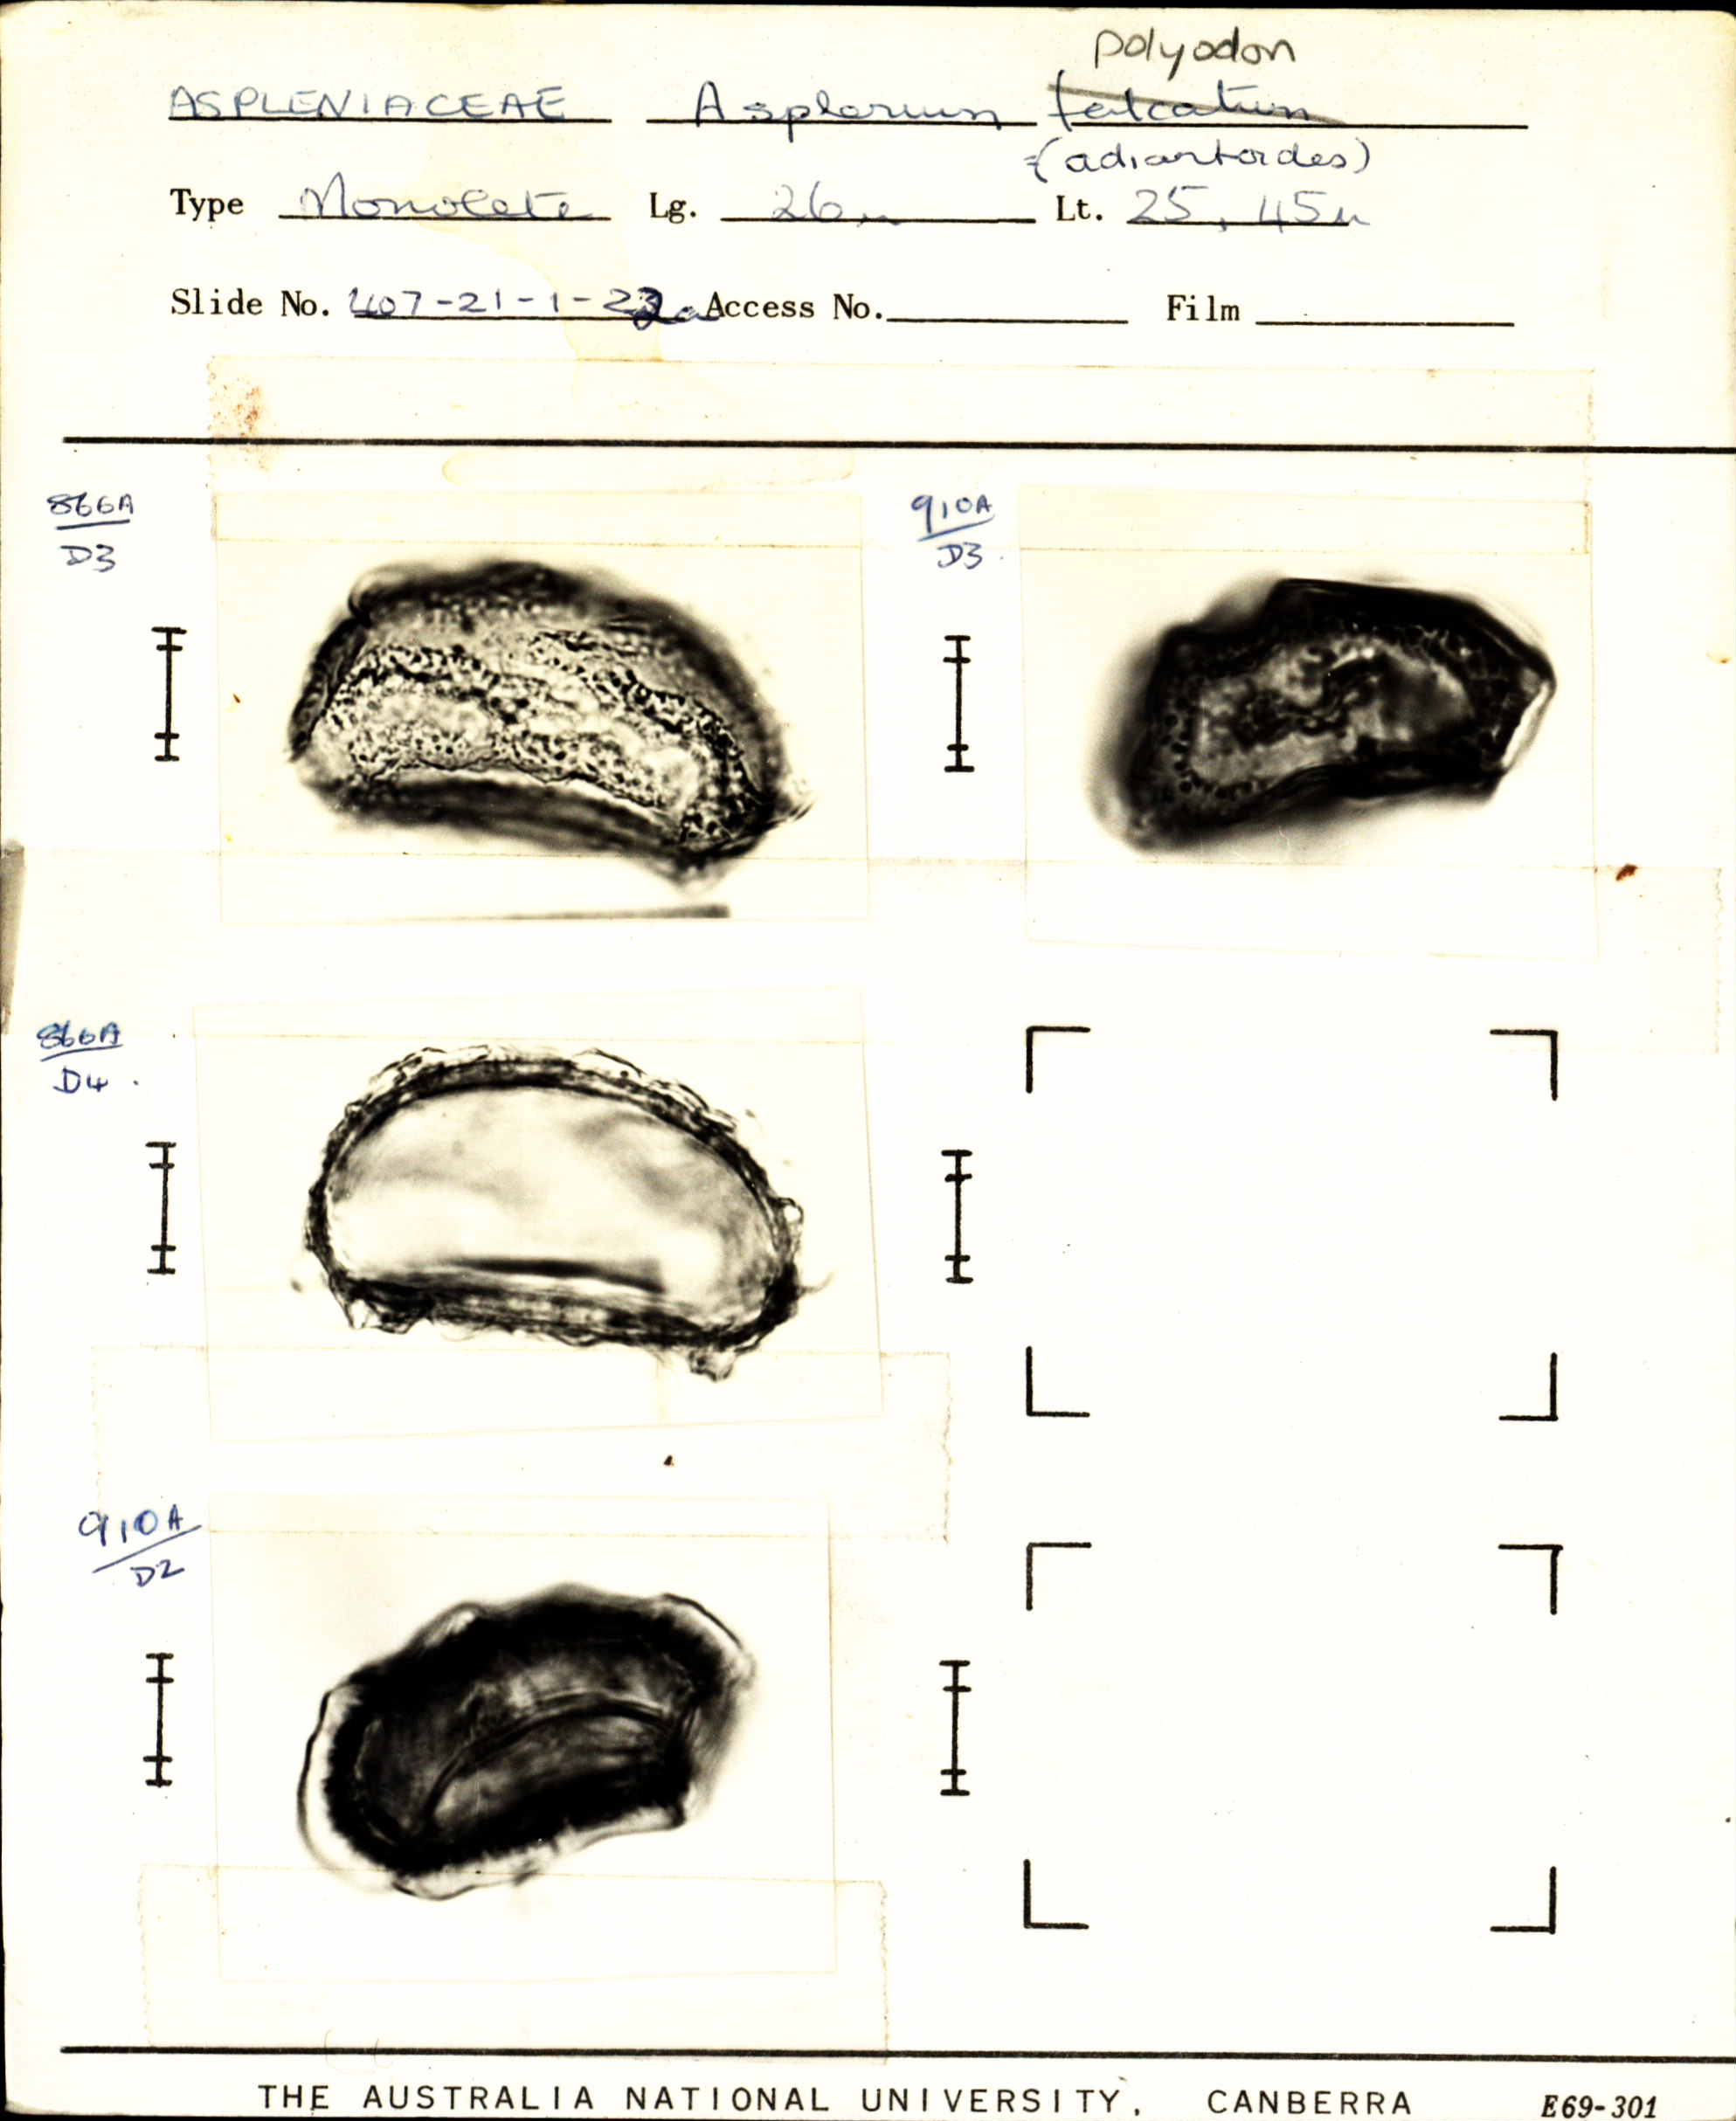 polyodon
ASPLENIACEAE Asplenium falcatum
=(adiantoides)
Type Monolete Lg. 26µ Lt. 25, 45µ
Slide No. 407-21-1-22a Access No. Film
866A
D3
910A
D3.
866A
D4.
910A
D2
THE AUSTRALIA NATIONAL UNIVERSITY, CANBERRA E69-301